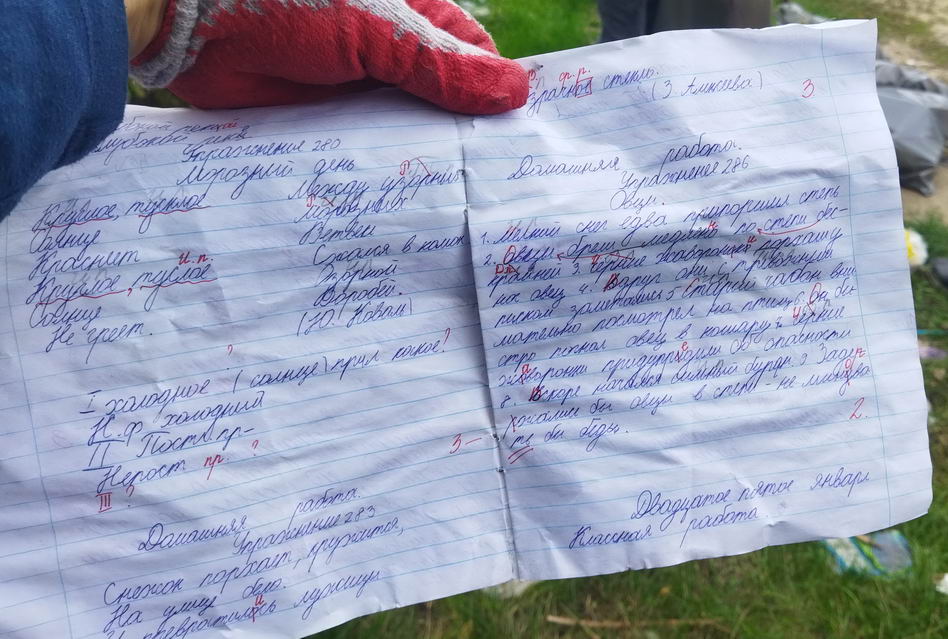 Упражнение 280
Морозный день
Круглое, тусклое
Солнце
Краснеет
и.п.
Круглое, тусклое
Солнце
Не греет.
Между узорных
Морозных
Ветвей
Сжался в комок
Зоркой
Воробей.
(Ю. Коваль)
?
I холодное (солнце) прил какое?
Н.ф холодный
II Пост. пр-
Непост пр. ?
III ?
3-
Домашняя работа.
Упражнение 283
Снежок порхает, кружится,
На улице бело.
И превратились лужицы
ф. р.
стекло.
(З. Алексеева)
3
Домашняя работа.
Упражнение 286
Овцы.
1. Мелкий снег едва припорошил степь
2. Овцы брели медлено по степи бес-
крайней 3. Черние жаворонки
нок овец 4. Вдруг они с тревожным
писком заметались 5 Старый чабан вни
мательно посмотрел на птиц 6. Он бы
стро погнал овец в кошару 7. Черние
жаворонки придупредили об опасности
8. Вскоре начался сильный буран. 9 Заде
ржались бы овцы в степи - не миновать
бы беды.
2.
Двадцатое пятое января
Классная работа.